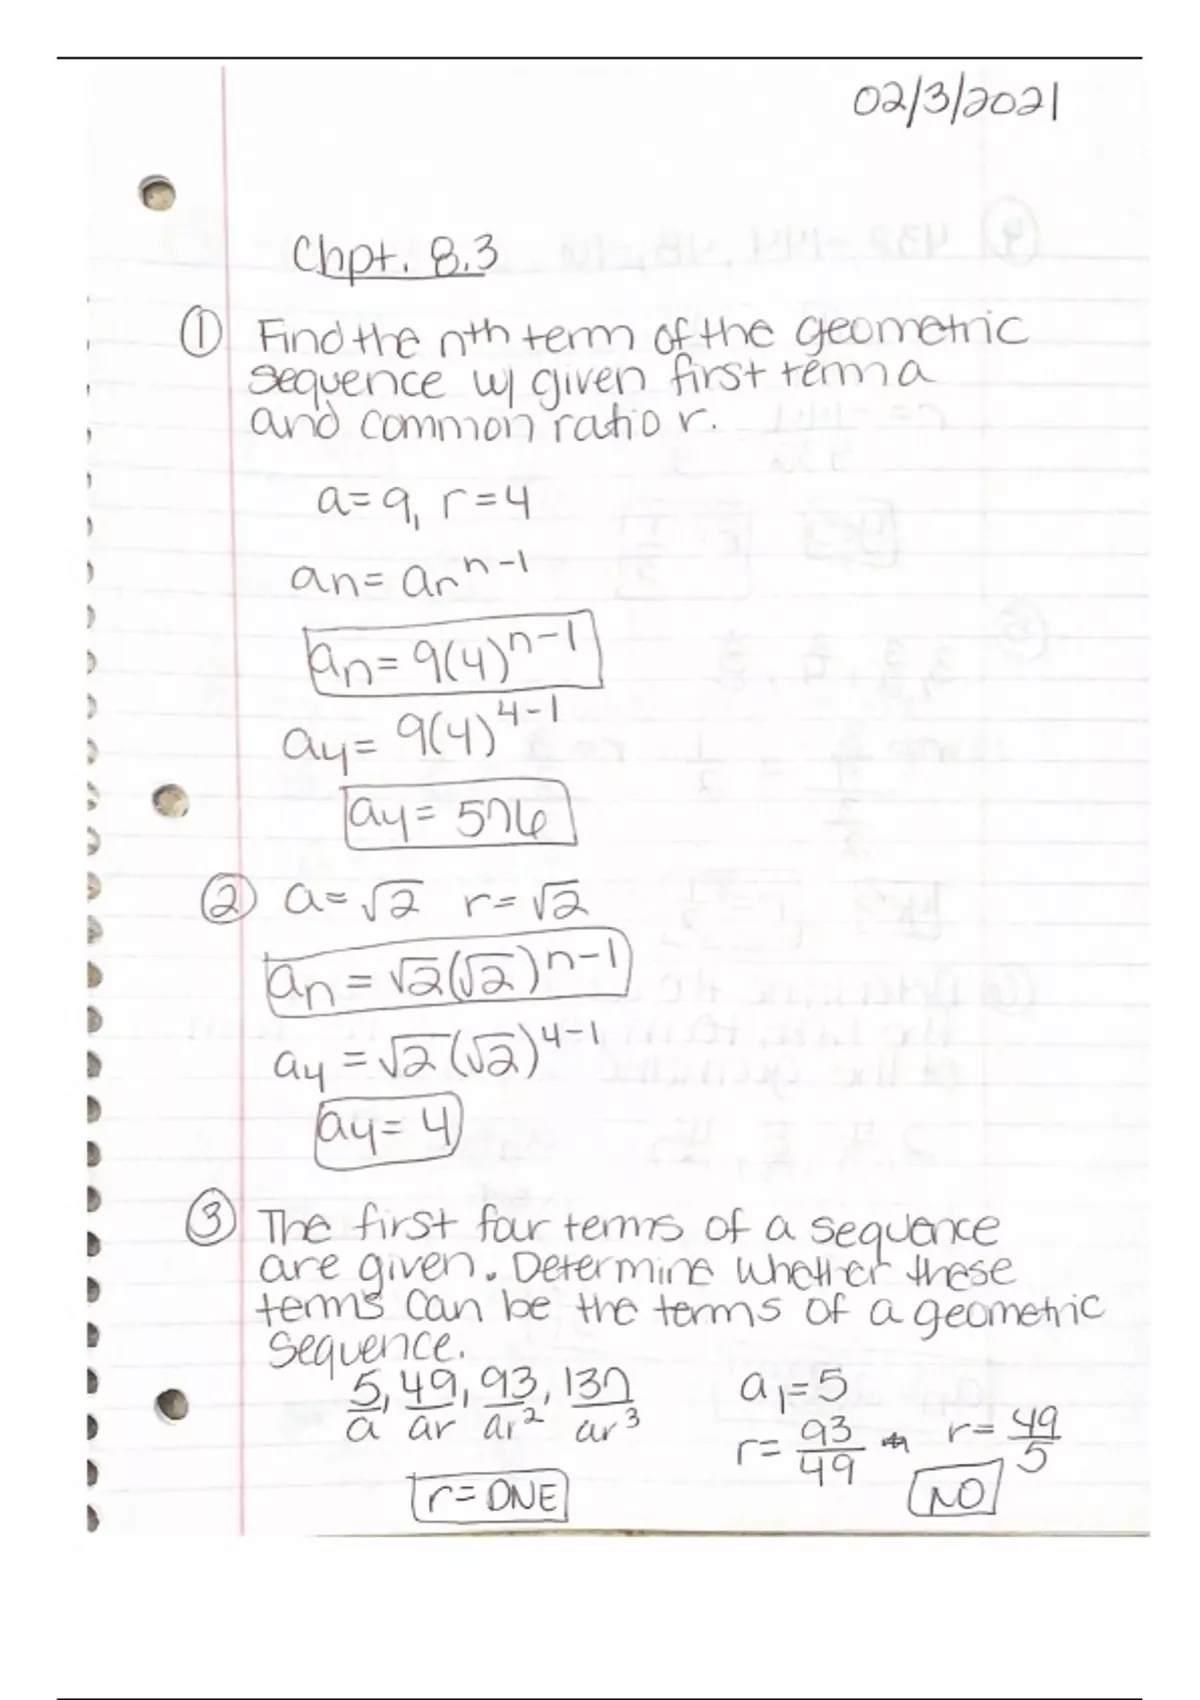 02/3/2021
Chpt. 8.3
① Find the nth term of the geometric
sequence w/ given first term a
and common ratio r.
a=9, r=4
an=arn-1
an=9(4)n-1
a4=9(4)4-1
a4=576
② a=√2 r=√2
an=√2(√2)n-1
a4=√2(√2)4-1
a4=4
③ The first four terms of a sequence
are given. Determine whether these
terms can be the terms of a geometric
sequence.
5, 49, 93, 137 a1=5
a ar ar2 ar3 r=93/49 ≠ r=49/5
r=DNE NO